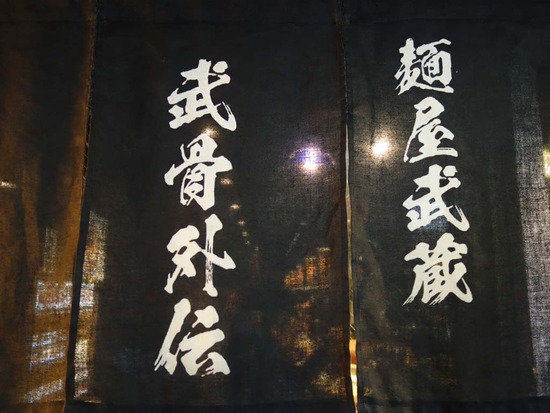 麺屋武蔵
武骨外伝